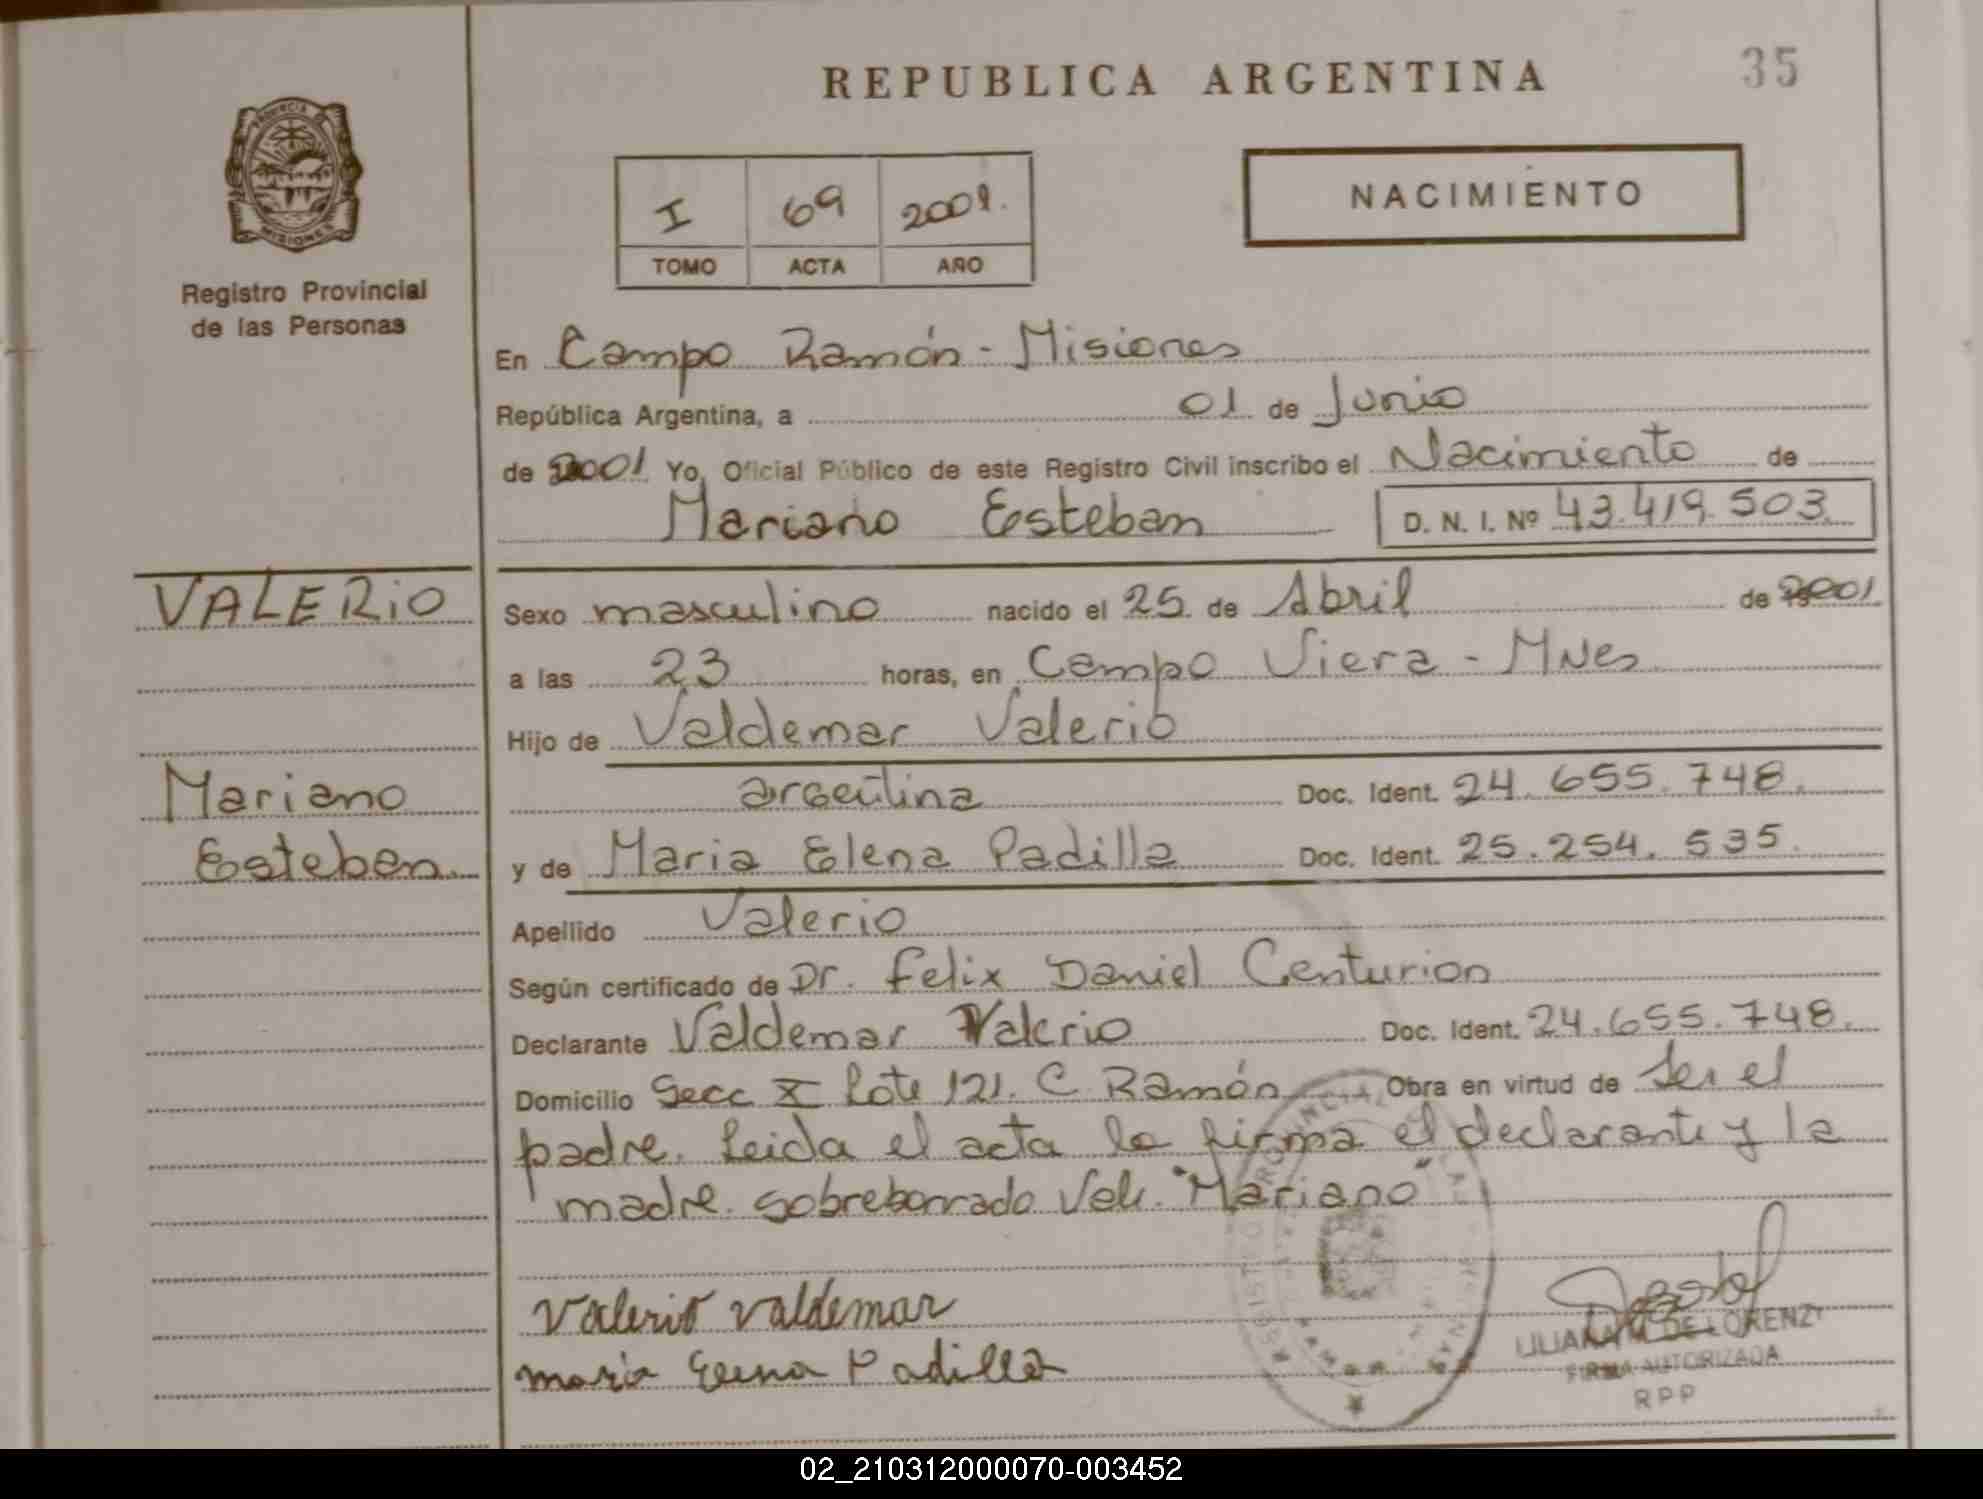 REPUBLICA ARGENTINA
35
PROVINCIA DE
MISIONES
Registro Provincial
de las Personas
I 69 2001.
TOMO ACTA AÑO
NACIMIENTO
En Campo Ramón - Misiones
República Argentina, a 01 de Junio
de 2001 Yo, Oficial Público de este Registro Civil inscribo el Nacimiento de
Mariano Esteban D. N. I. Nº 43.419.503.
VALERIO
Mariano
Esteban.
Sexo masculino nacido el 25 de Abril de 2001
a las 23 horas, en Campo Viera - Mnes
Hijo de Valdemar Valerio
argentina Doc. Ident. 24.655.748.
y de Maria Elena Padilla Doc. Ident. 25.254.535.
Apellido Valerio
Según certificado de Dr. Felix Daniel Centurion
Declarante Valdemar Valerio Doc. Ident. 24.655.748.
Domicilio Secc X Lote 121. C. Ramón Obra en virtud de Ser el
padre. Leida el acta la firma el declarante y la
madre. sobreborrado Vale. "Mariano"
Valerio Valdemar
maria Elena Padilla
LILIANA M. DE LORENZI
FIRMA AUTORIZADA
RPP
02_210312000070-003452